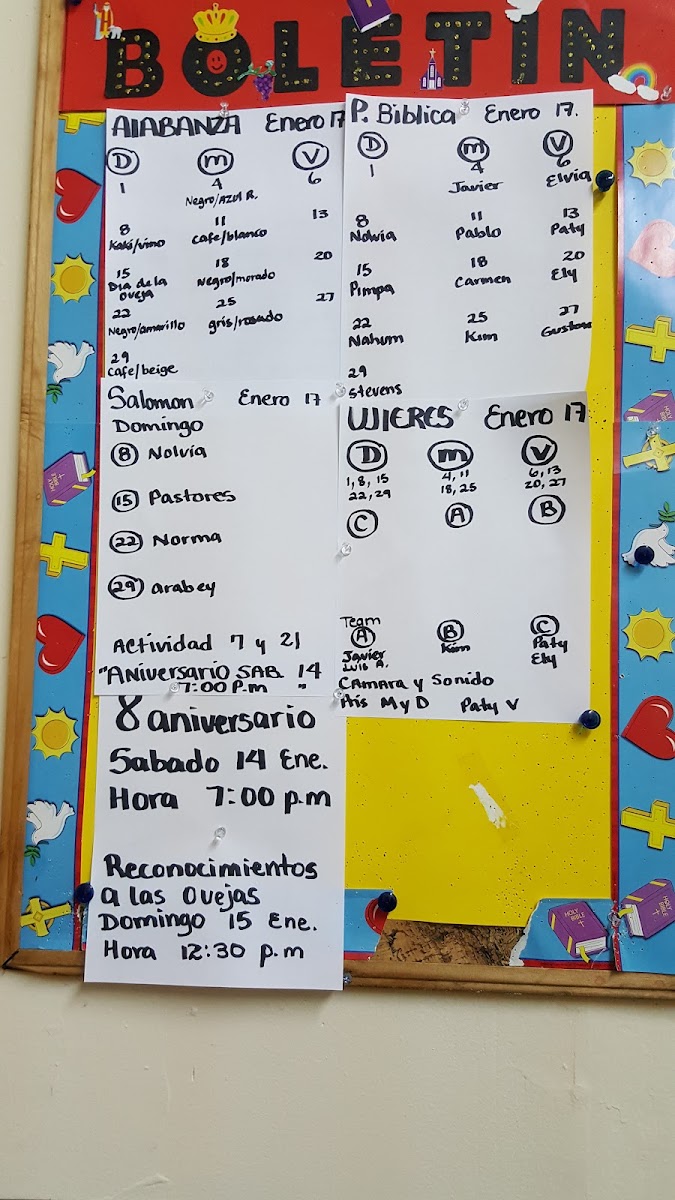 BOLETIN
AlABANZA Enero 17
D m V
1 4 6
Negro/Azul R.
8 11 13
Kaki/vino Cafe/blanco
15 18 20
Dia de la Oveja Negro/morado
22 25 27
Negro/amarillo gris/rosado
29
Cafe/beige
P. Biblica Enero 17.
D m V
1 4 6
Javier Elvia
8 11 13
Nolvia Pablo Paty
15 18 20
Pimpa Carmen Ely
22 25 27
Nahum Kim Gustavo
29
Stevens
Salomon Enero 17
Domingo
8 Nolvia
15 Pastores
22 Norma
29 arabey
Actividad 7 y 21
"Aniversario SAB 14
7:00 P.m "
UJIERES Enero 17
D m V
1, 8, 15 4, 11 6, 13
22, 29 18, 25 20, 27
C A B
Team
A B C
Javier Kim Paty
Luis A. Ely
CAmara y Sonido
Aris M y D Paty V
8 aniversario
Sabado 14 Ene.
Hora 7:00 p.m
Reconocimientos
a las Ovejas
Domingo 15 Ene.
Hora 12:30 p.m
HOLY BIBLE
HOLY BIBLE
HOLY BIBLE
HOLY BIBLE